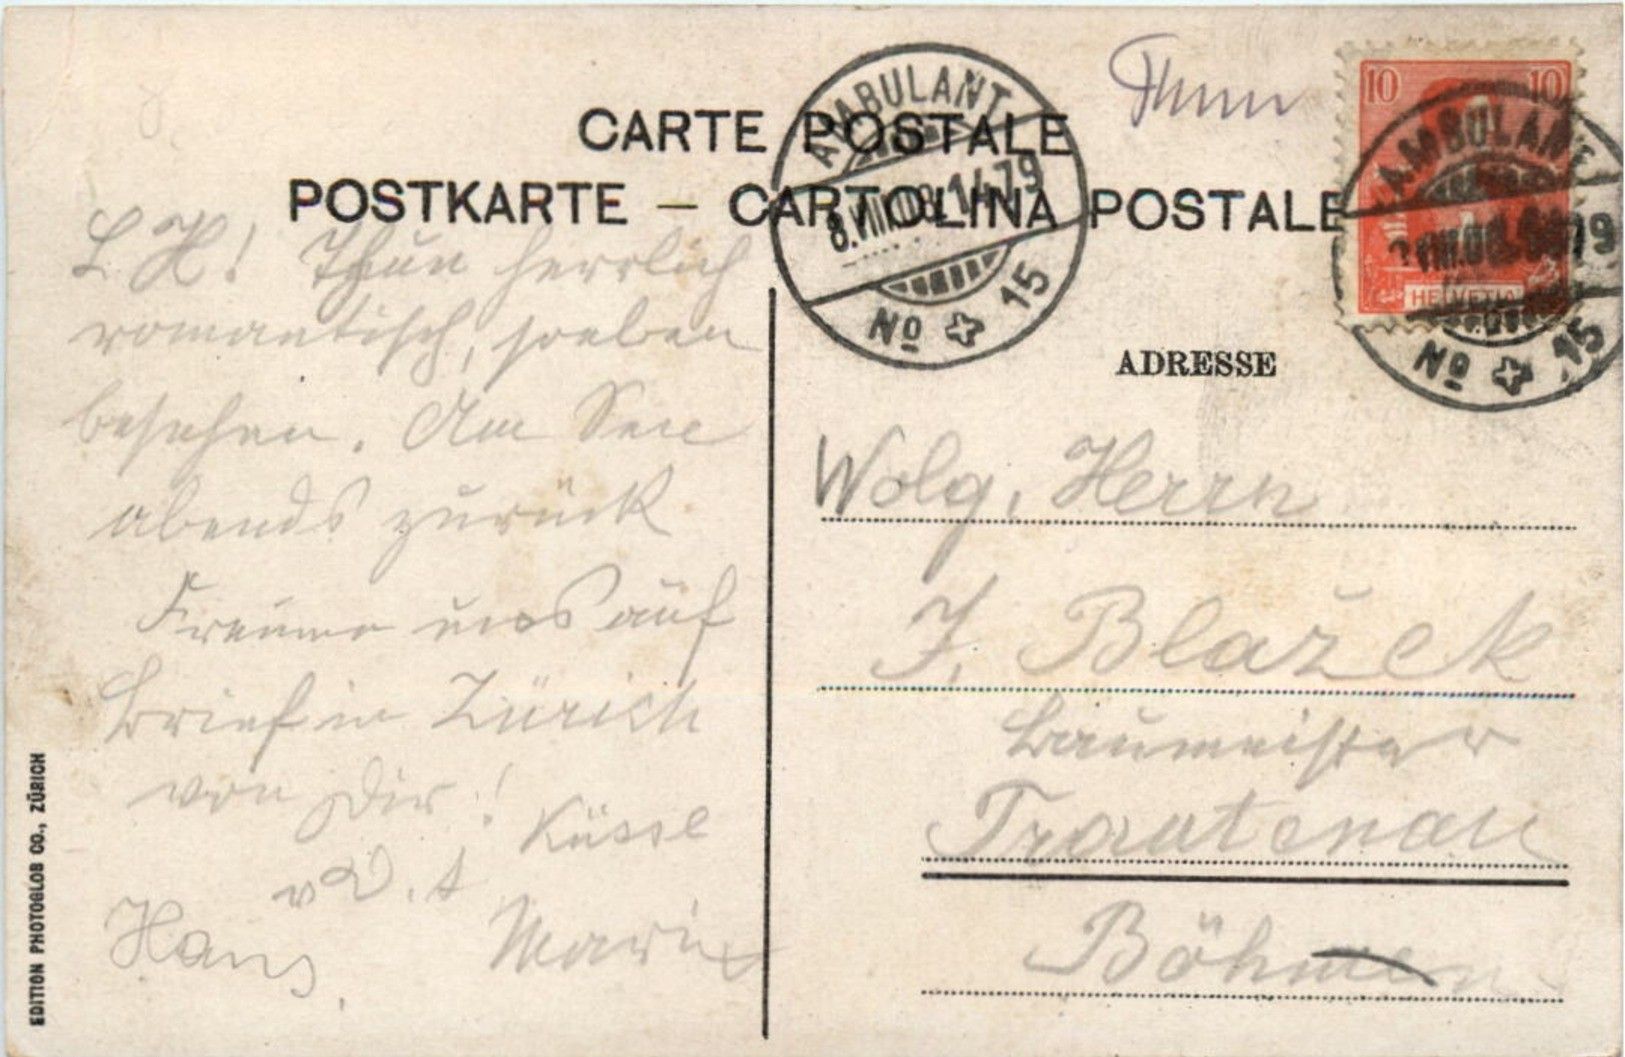 CARTE POSTALE
POSTKARTE — CARTOLINA POSTALE
Thun
AMBULANT
8.VIII.08.1479
No 15
10 10
HELVETIA
AMBULANT
VIII.08. 79
No 15
ADRESSE
L. H! Thun herrlich
romantisch, soeben
besehen. Am See
abends zurück
Freuen uns auf
Brief in Zürich
von Dir!
Küsse
v D. t
Hans.
Marie
Wolg. Herrn
J. Blažek
Baumeister
Trautenau
Böhmen
EDITION PHOTOGLOB CO., ZÜRICH